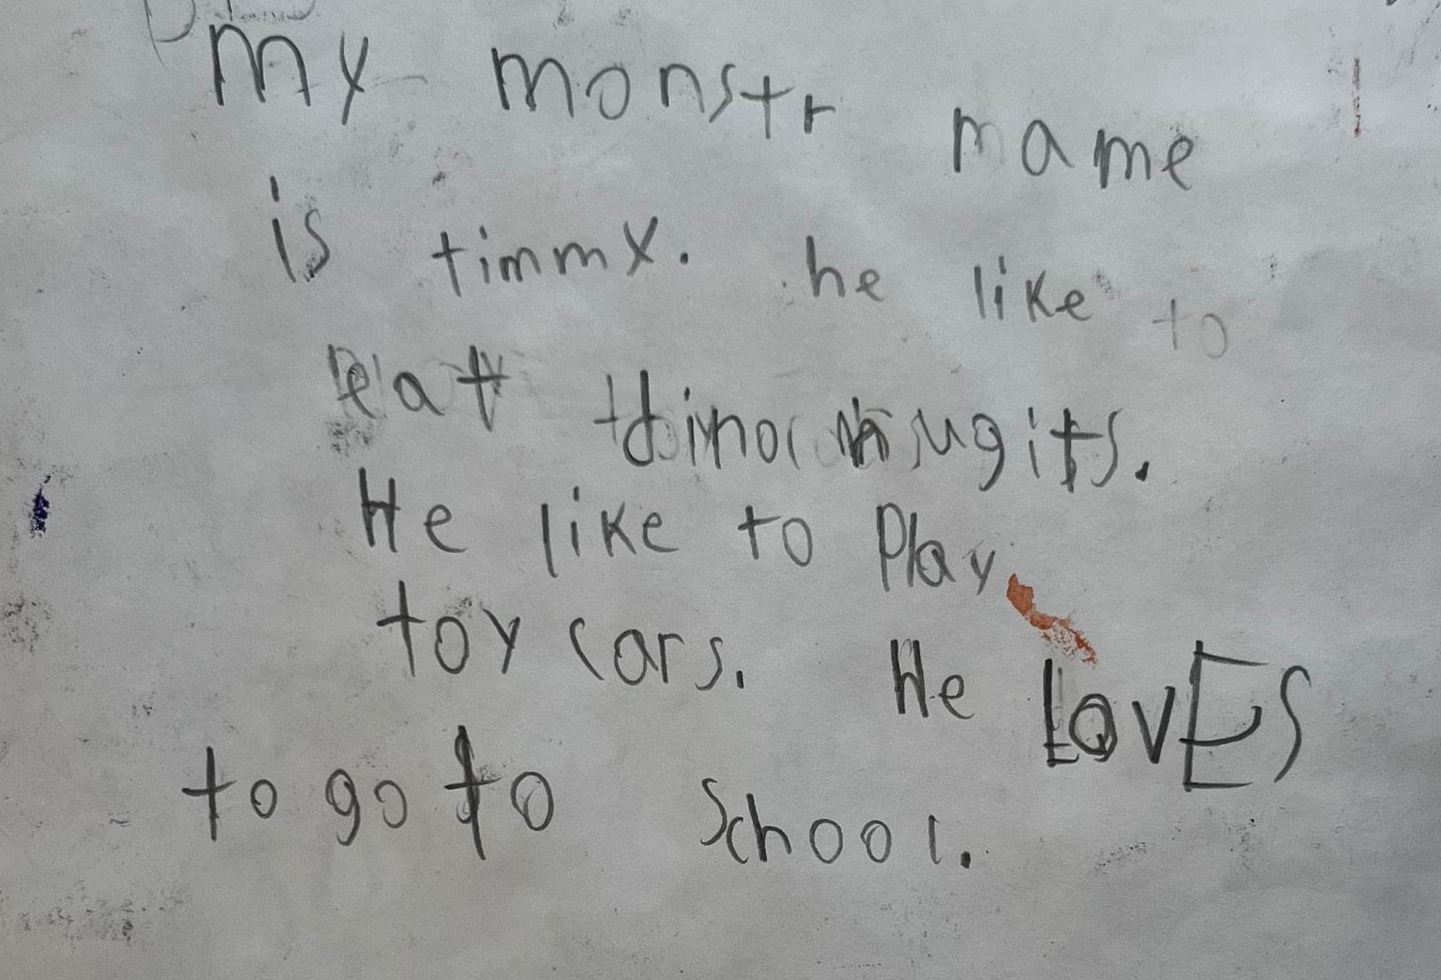 my monstr name
is timmy. he like to
eat dino nugits.
He like to Play
toy cars. He LovES
to go to School.